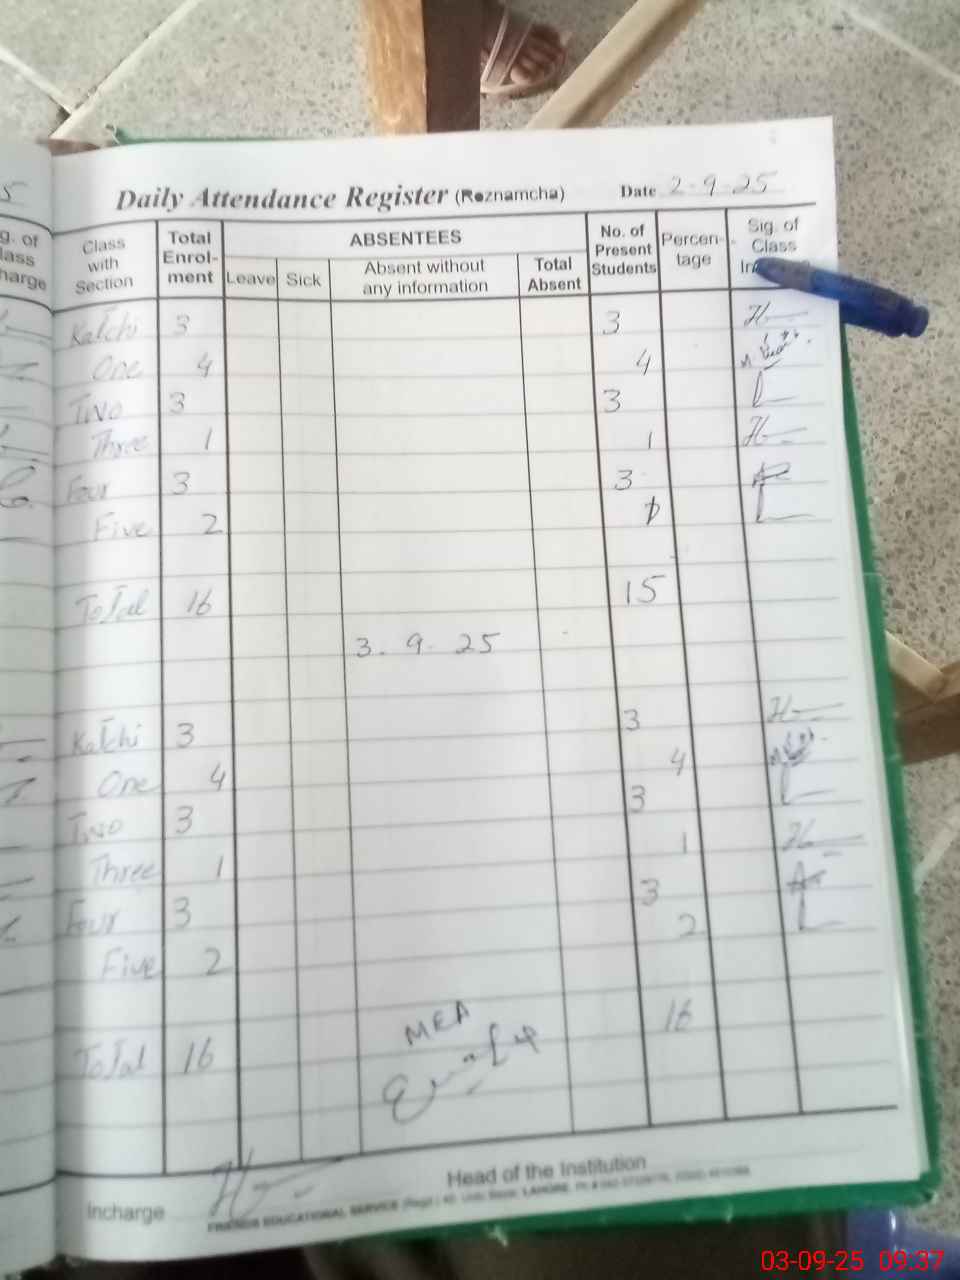 5
Daily Attendance Register (Roznamcha) Date 2-9-25
g. of
lass
harge
Class with Section Total Enrolment ABSENTEES No. of Present Students Percentage Sig. of Class
Leave Sick Absent without any information Total Absent
Katchi 3 3
One 4 4
Two 3 3
Three 1 1
Four 3 3
Five 2
Total 16 15
3. 9. 25
Katchi 3 3
One 4 4
Two 3 3
Three 1 1
Four 3 3
Five 2 2
Total 16 16
MEA
Incharge Head of the Institution
FRIENDS EDUCATIONAL SERVICE (Regd.) 40, Urdu Bazar, LAHORE.
03-09-25 09:37